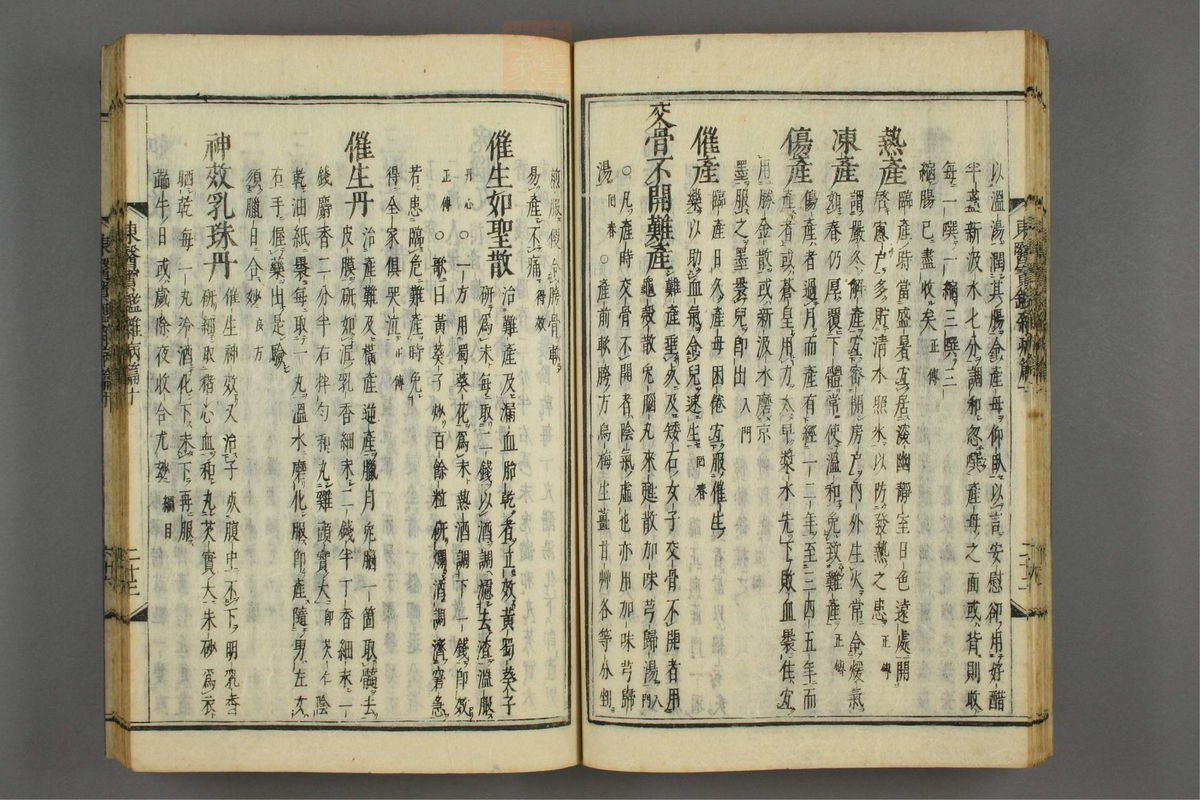 以溫湯潤其腸令產母仰臥以言安慰卻用好醋
半盞新汲水七分調和忽噀產母之面或背則收
每一噀一縮三噀三
縮腸已盡收矣 正傳
熱產 產時當盛暑宜居深幽靜室日色遠處開
啓窻戶多貯清水照水以防發熱之患 正傳
凍產 謂嚴冬解產宜密閉房戶內外生火常令煖氣
如春仍厚覆下體常使溫和免致難產 正傳
傷產 傷產者過月而產有經一二年至三四五年而
產者或蒼皇用力太早漿水先下敗血褁住宜
用勝金散或新汲水磨京
墨服之墨褁兒卽出 入門
催產 臨產日久產母困倦宜服催生
藥以助血氣令兒速生 回春
交骨不開難產 難產垂久及矮石女子交骨不開者用
龜殼散兔腦丸來甦散加味芎歸湯 入門
○凡產時交骨不開者陰氣虛也亦用加味芎歸
湯 回春 ○產前軟胯方烏梅生薑甘艸各等分剉
煎服便令胯骨軟
易產不痛 得效
催生如聖散 治難產及漏血胎乾者立效黃蜀葵子
研爲末每取二錢以酒調濾去渣溫服
丹心 ○一方用蜀葵花爲末熱酒調下一錢卽效
正傳 ○歌曰黃葵子炒百餘粒研爛酒調濟窘急
若患臨危難產時免
得全家俱哭泣 正傳
催生丹 治產難及橫產逆產臘月兔腦一箇取髓去
皮膜研如泥乳香細末二錢半丁香細末一
錢麝香二分半右拌勻和丸雞頭實大卽芡仁陰
乾油紙褁每取一丸溫水磨化服卽產隨男左女
右手握藥出是驗
須臘日合妙 良方
神效乳珠丹 催生神效又治子死腹中不下明乳香
研細取猪心血和丸芡實大朱砂爲衣
晒乾每一丸冷酒化下未下再服
端午日或歲除夜收合尤妙 綱目
東醫寶鑑雜病篇十
二十三